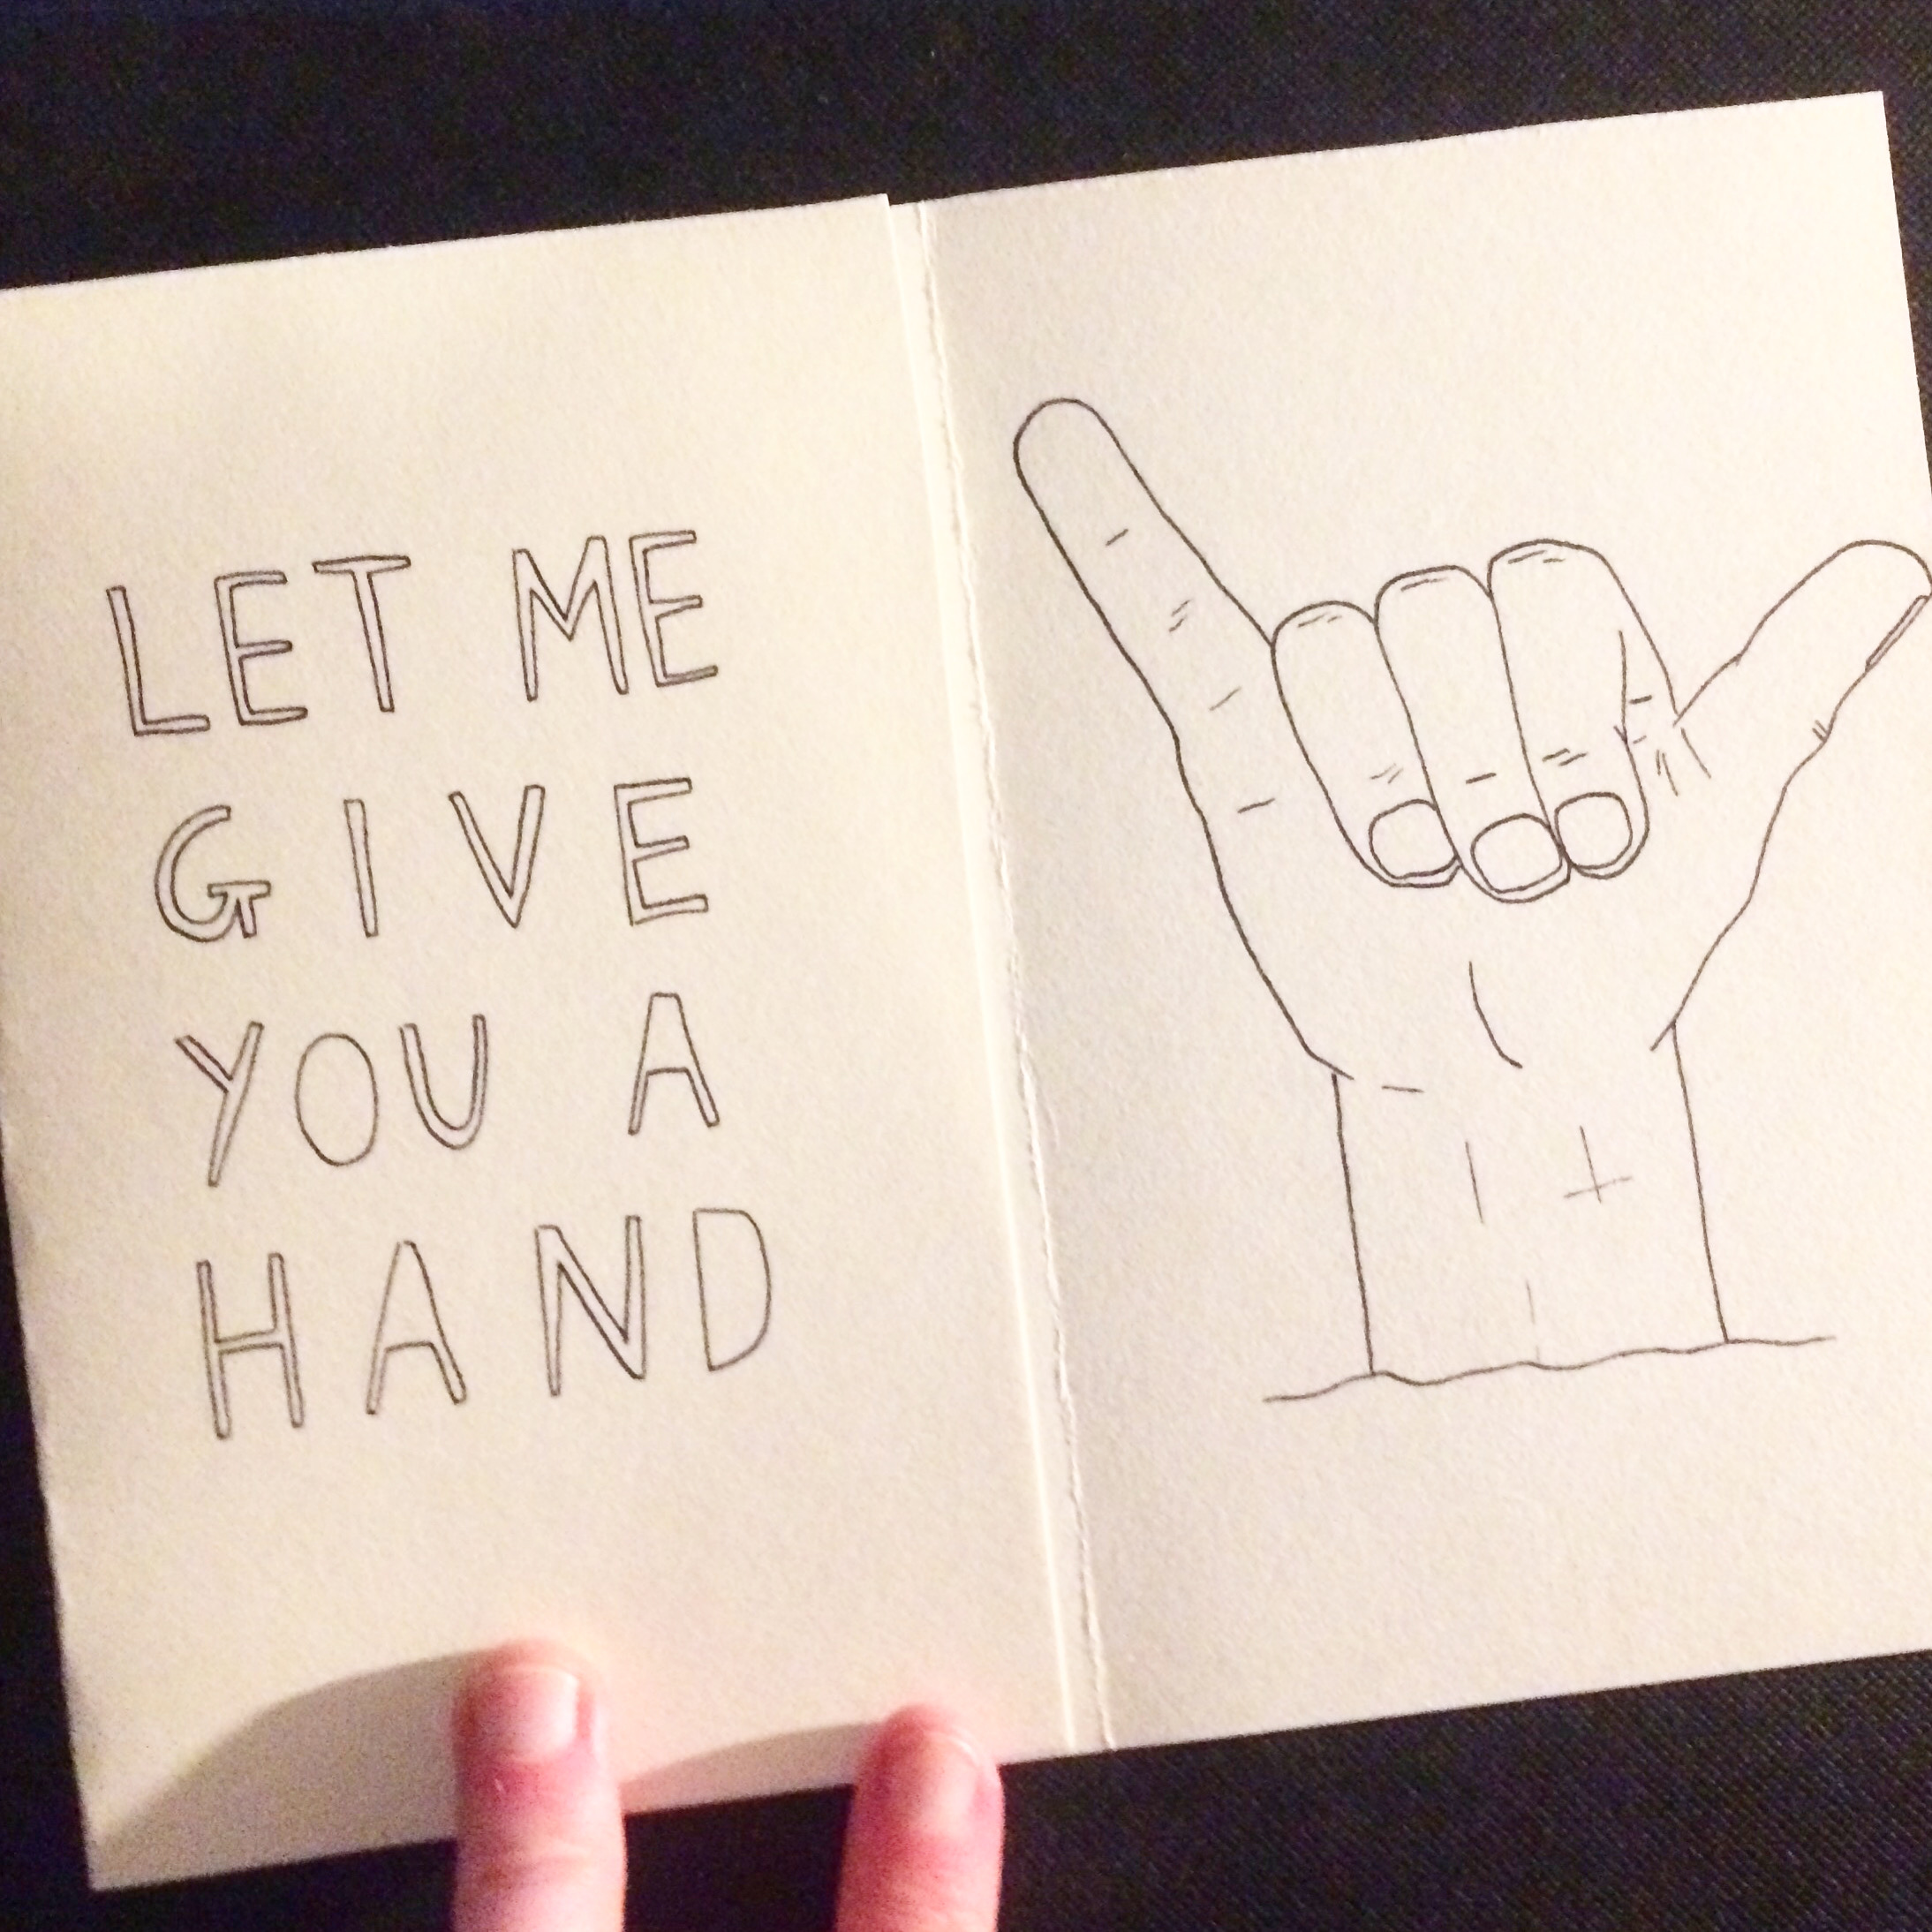 LET ME
GIVE
YOU A
HAND